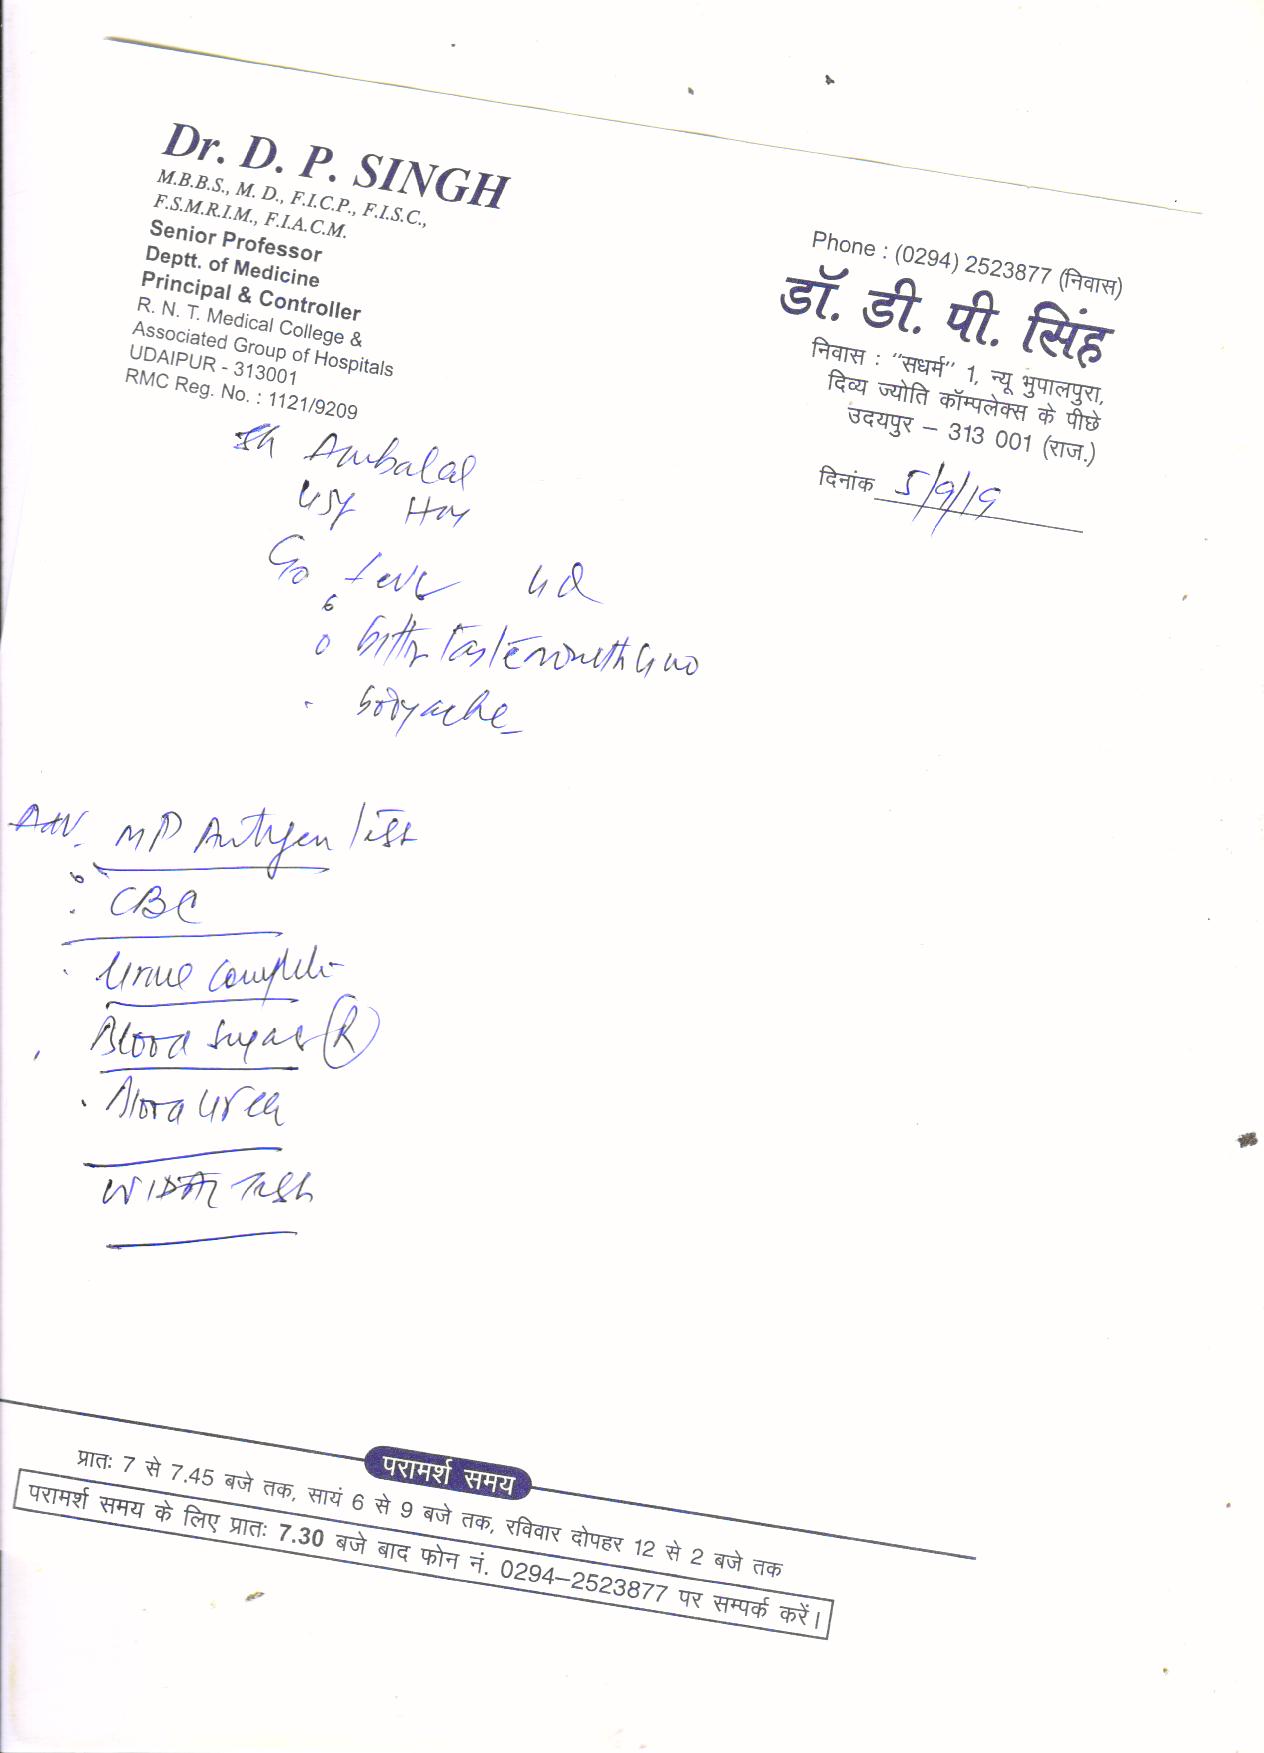 Dr. D. P. SINGH
M.B.B.S., M. D., F.I.C.P., F.I.S.C.,
F.S.M.R.I.M., F.I.A.C.M.
Senior Professor
Deptt. of Medicine
Principal & Controller
R. N. T. Medical College &
Associated Group of Hospitals
UDAIPUR - 313001
RMC Reg. No. : 1121/9209
Phone : (0294) 2523877 (निवास)
डॉ. डी. पी. सिंह
निवास : "सधर्म" 1, न्यू भुपालपुरा,
दिव्य ज्योति कॉम्पलेक्स के पीछे
उदयपुर – 313 001 (राज.)
दिनांक 5/9/19
Ambalal
fever
bodyache
Adv. MP Antigen Test
CBC
Urine Complete
Blood Sugar (R)
Blood Urea
WIDAL Test
परामर्श समय
प्रातः 7 से 7.45 बजे तक, सायं 6 से 9 बजे तक, रविवार दोपहर 12 से 2 बजे तक
परामर्श समय के लिए प्रातः 7.30 बजे बाद फोन नं. 0294–2523877 पर सम्पर्क करें।